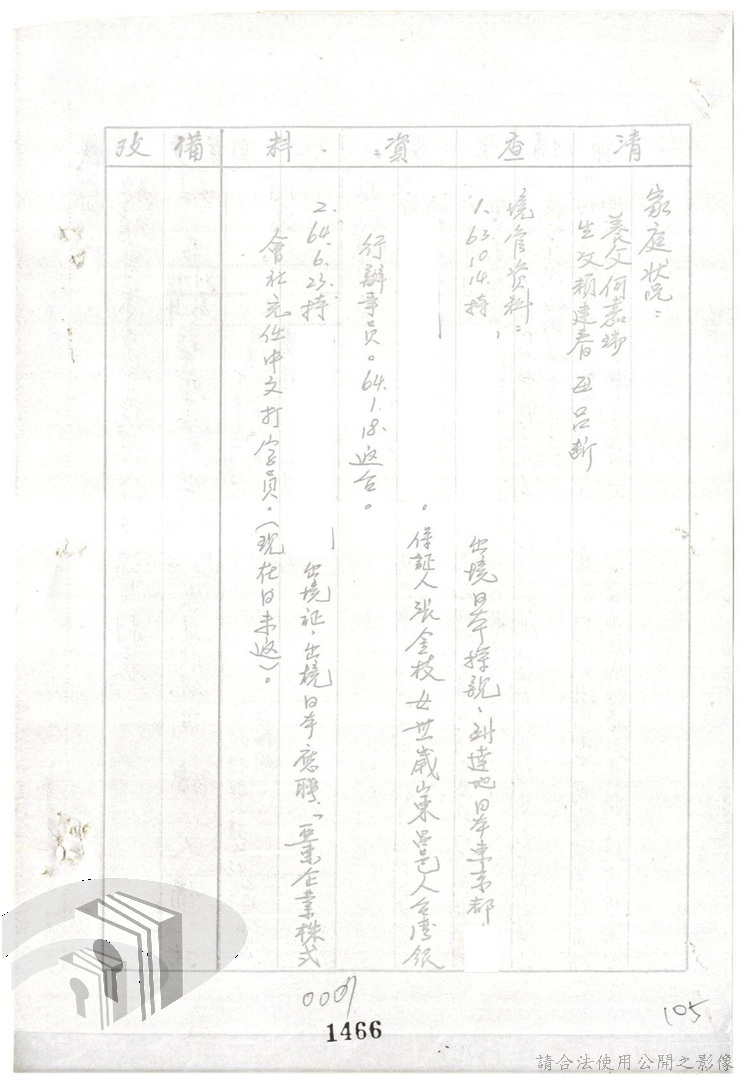 清查資料
備攷
家庭狀況：
養父何嘉瑞
生父賴建春 王呂斷
境管資料：
1. 63.10.14.持
出境日本探親，到達地日本東京都
。保証人張金枝女卅歲山東昌邑人台灣銀
行辦事員。64.1.18.返台。
2. 64.6.23.持
出境証，出境日本應聘「亞東企業株式
會社充任中文打字員。（現在日未返）。
0007
1466
105
請合法使用公開之影像